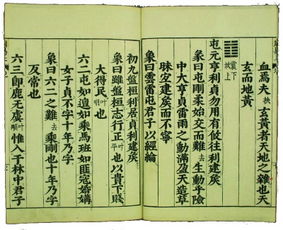 血焉夫扶玄黄者天地之雜也天
玄而地黄
䷂震下坎上
屯元亨利貞勿用有攸往利建侯
彖曰屯剛柔始交而難去生動乎險
中大亨貞雷雨之動滿盈天造草
昧宜建侯而不寧
象曰雲雷屯君子以經綸
初九盤桓利居貞利建侯
象曰雖盤桓志行正也以貴下賤
大得民也
六二屯如邅如乘馬班如匪寇婚媾
女子貞不字十年乃字
象曰六二之難去乘剛也十年乃字
反常也
六三即鹿无虞惟入于林中君子